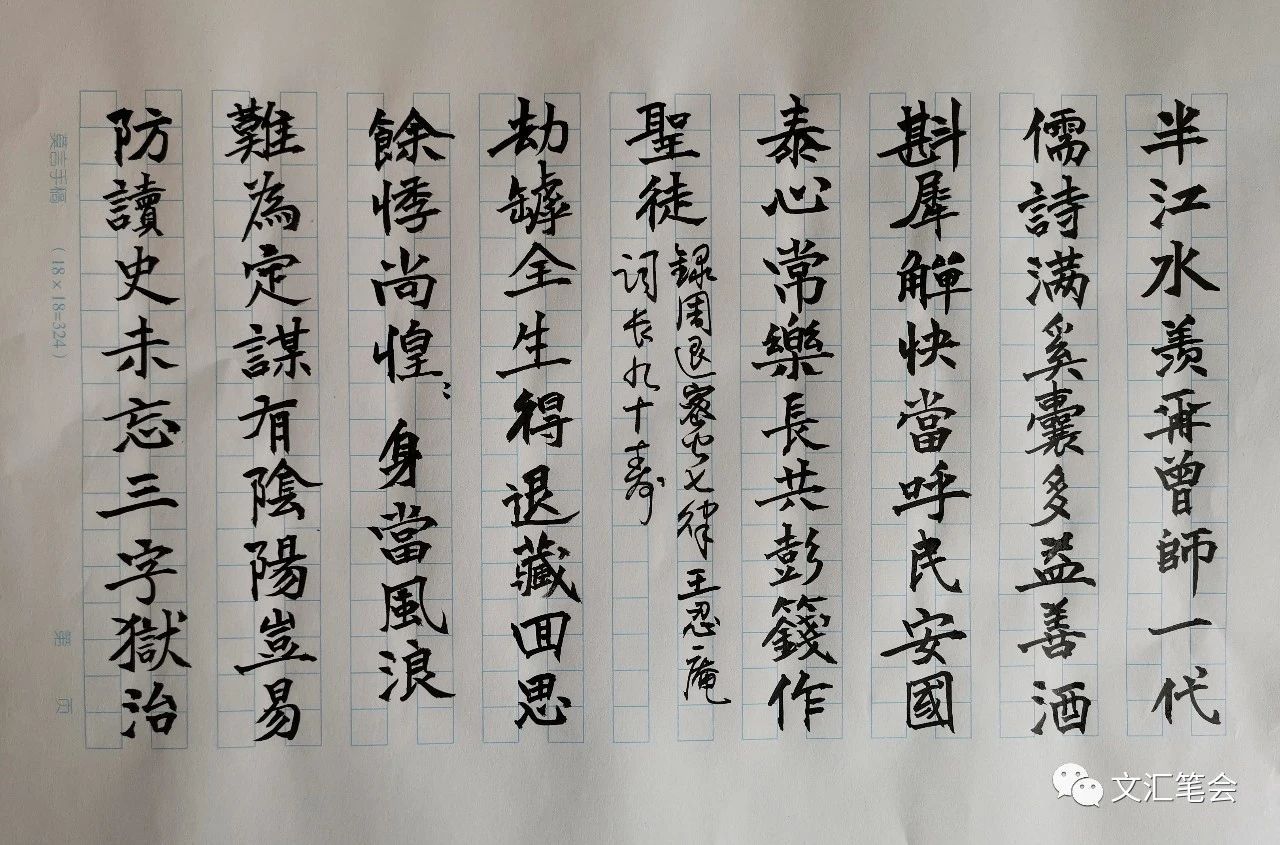 半江水羨再曾師一代
儒詩满奚囊多益善酒
斟犀觶快當呼民安國
泰心常樂長共彭籛作
聖徒
録周退密公七律王忍庵
词长九十寿
劫罅全生得退藏囬思
餘悸尚惶〻身當風浪
難為定謀有陰陽豈易
防讀史未忘三字獄治
莫言手稿 (18×18=324) 第 页
文汇笔会